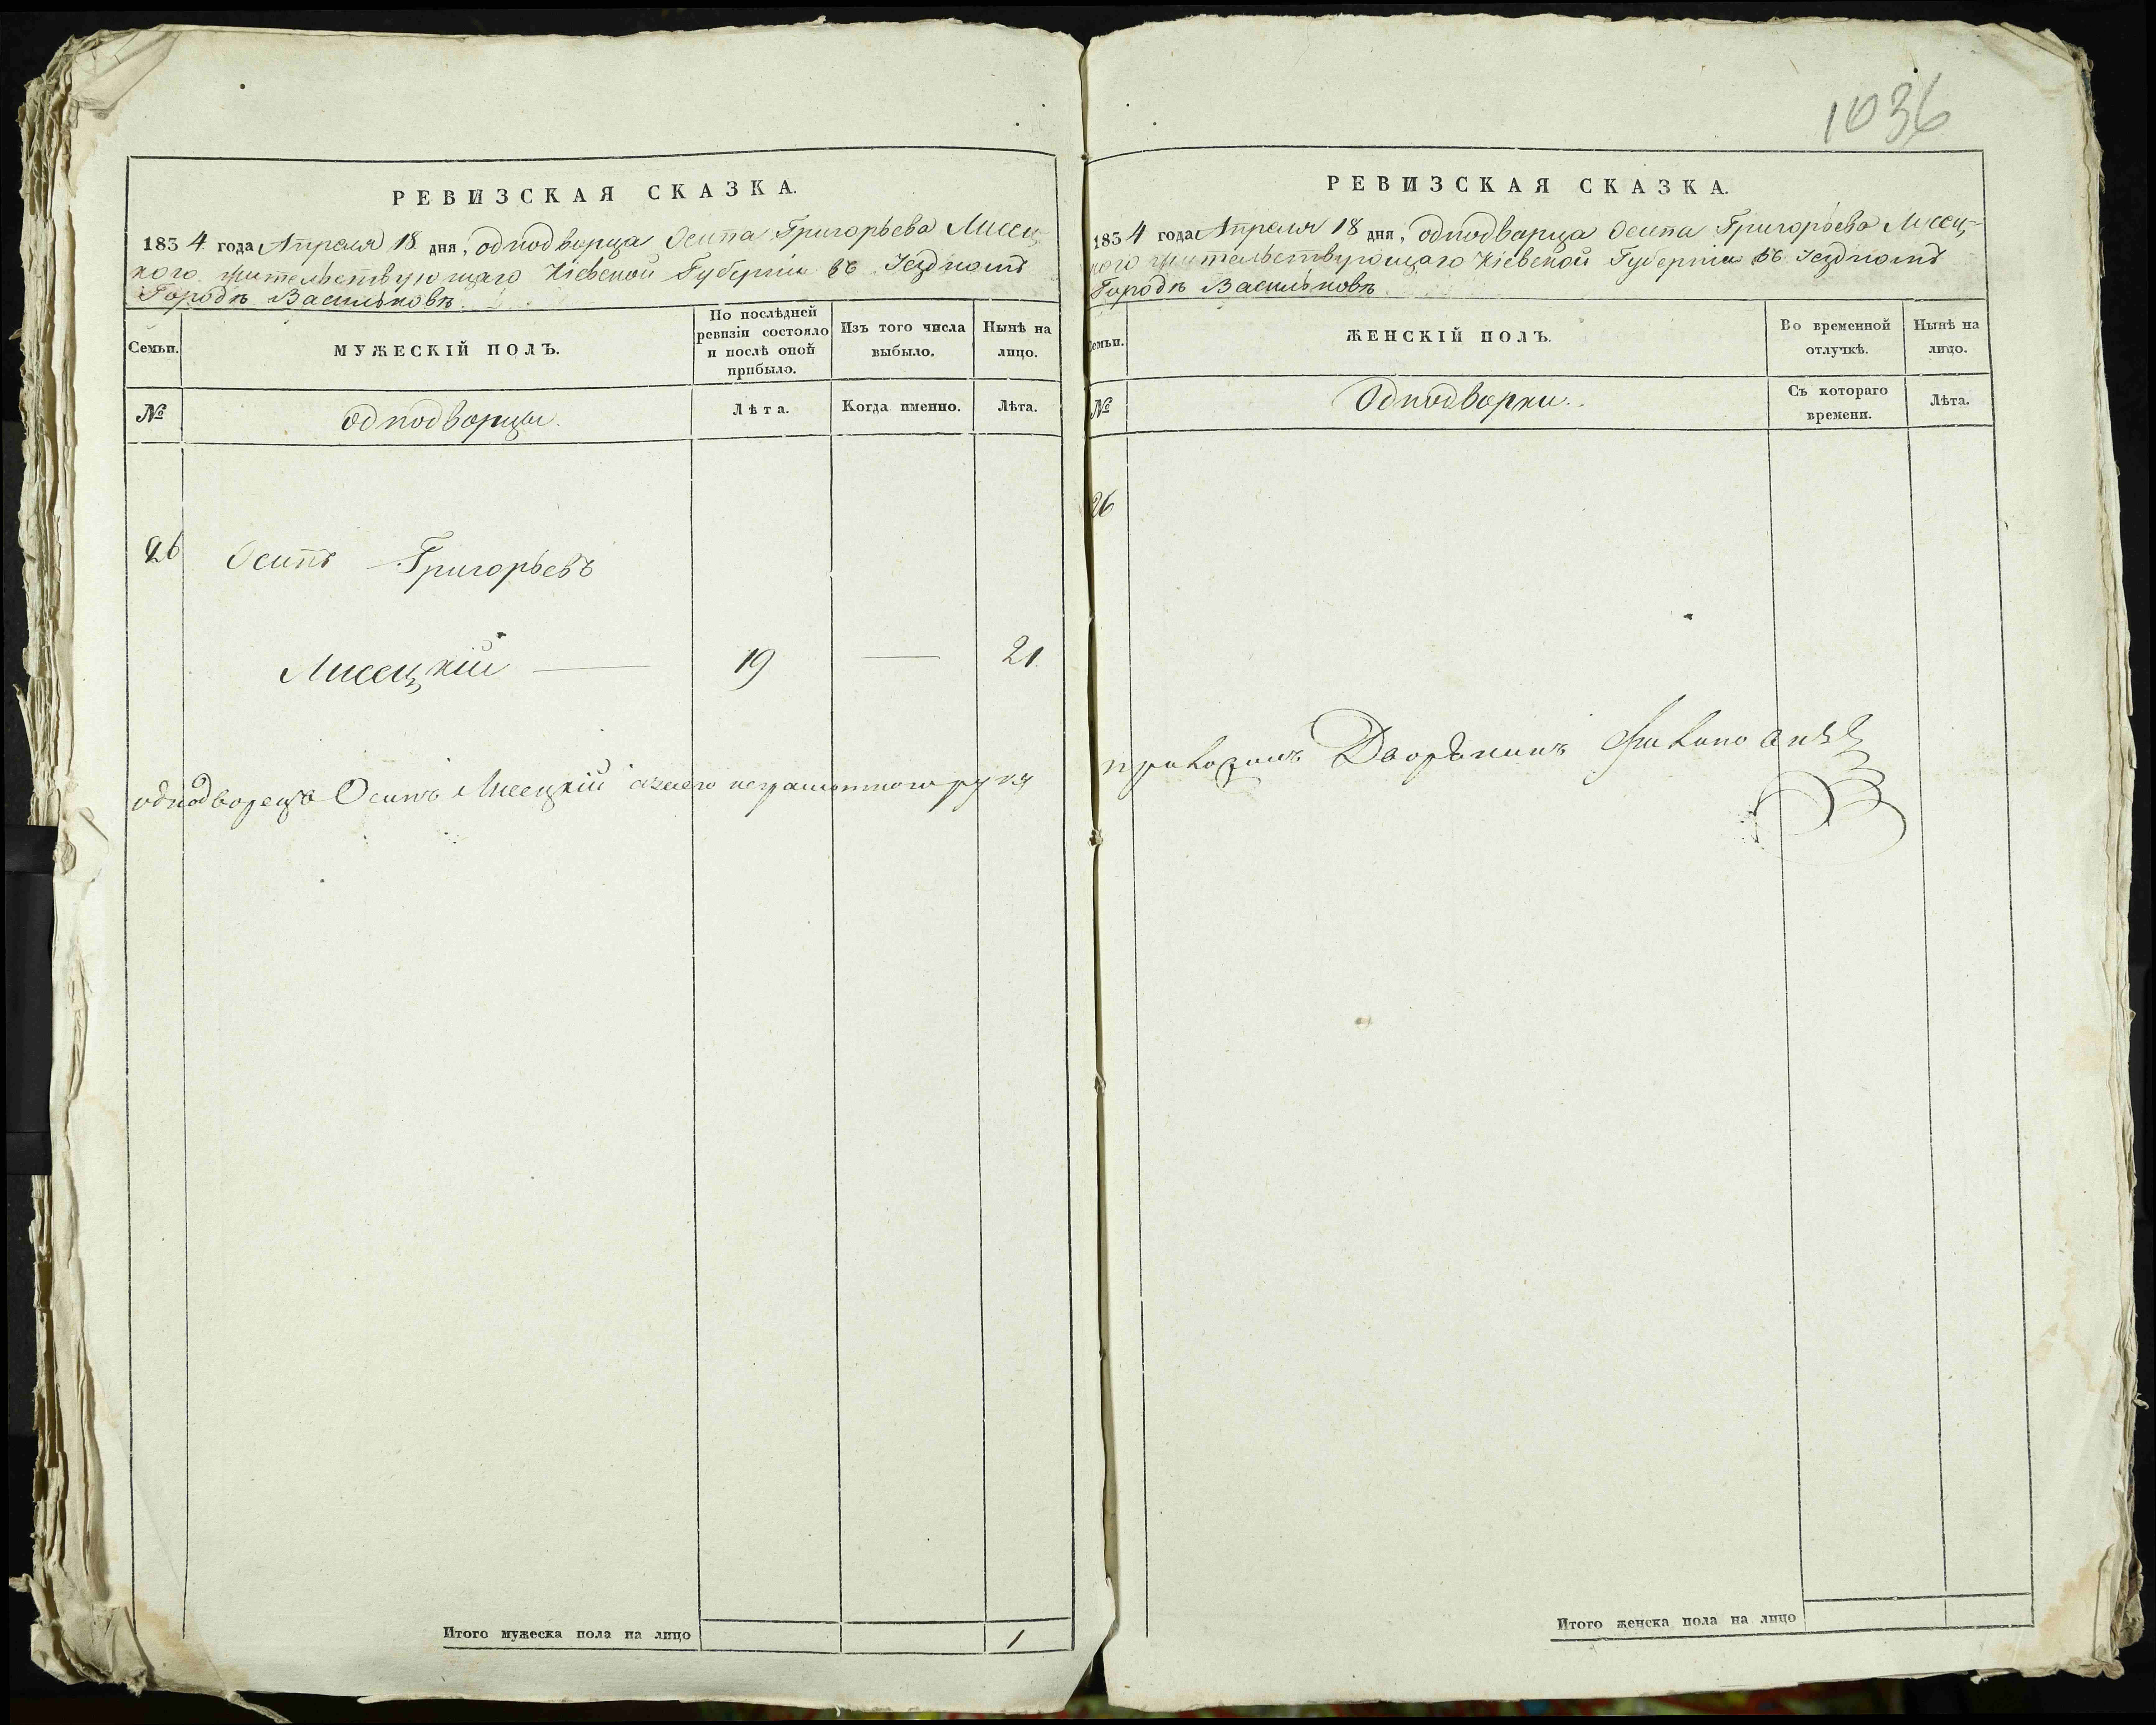 1036
РЕВИЗСКАЯ СКАЗКА.
1834 года Апреля 18 дня, однодворца Осипа Григорьева Лисец-
кого жительствующаго Кіевской Губерніи въ Уездномъ
Городѣ Васильковѣ
Семьи.
МУЖЕСКІЙ ПОЛЪ.
По послѣдней
ревизіи состояло
и послѣ оной
прибыло.
Изъ того числа
выбыло.
Нынѣ на
лицо.
№
однодворцы.
Лѣта.
Когда именно.
Лѣта.
26 Осипъ Григорьевъ
Лисецкій — 19 — 21.
однодворецъ Осипъ Лисецкій азаего неграмотного рукя
Итого мужеска пола на лицо 1
РЕВИЗСКАЯ СКАЗКА.
1834 года Апреля 18 дня, однодворца Осипа Григорьева Лисец-
кого жительствующаго Кіевской Губерніи въ Уездномъ
Городѣ Васильковѣ
Семьи.
ЖЕНСКІЙ ПОЛЪ.
Во временной
отлучкѣ.
Нынѣ на
лицо.
№
Однодворки.
Съ котораго
времени.
Лѣта.
26
Дворянинъ
Итого женска пола на лицо